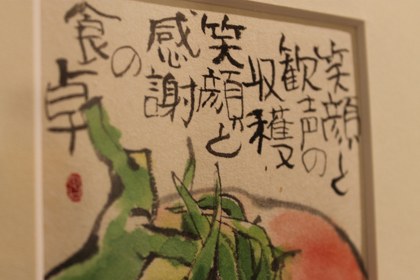 笑顔と
歓声の
収穫
笑顔と
感謝
の
食卓